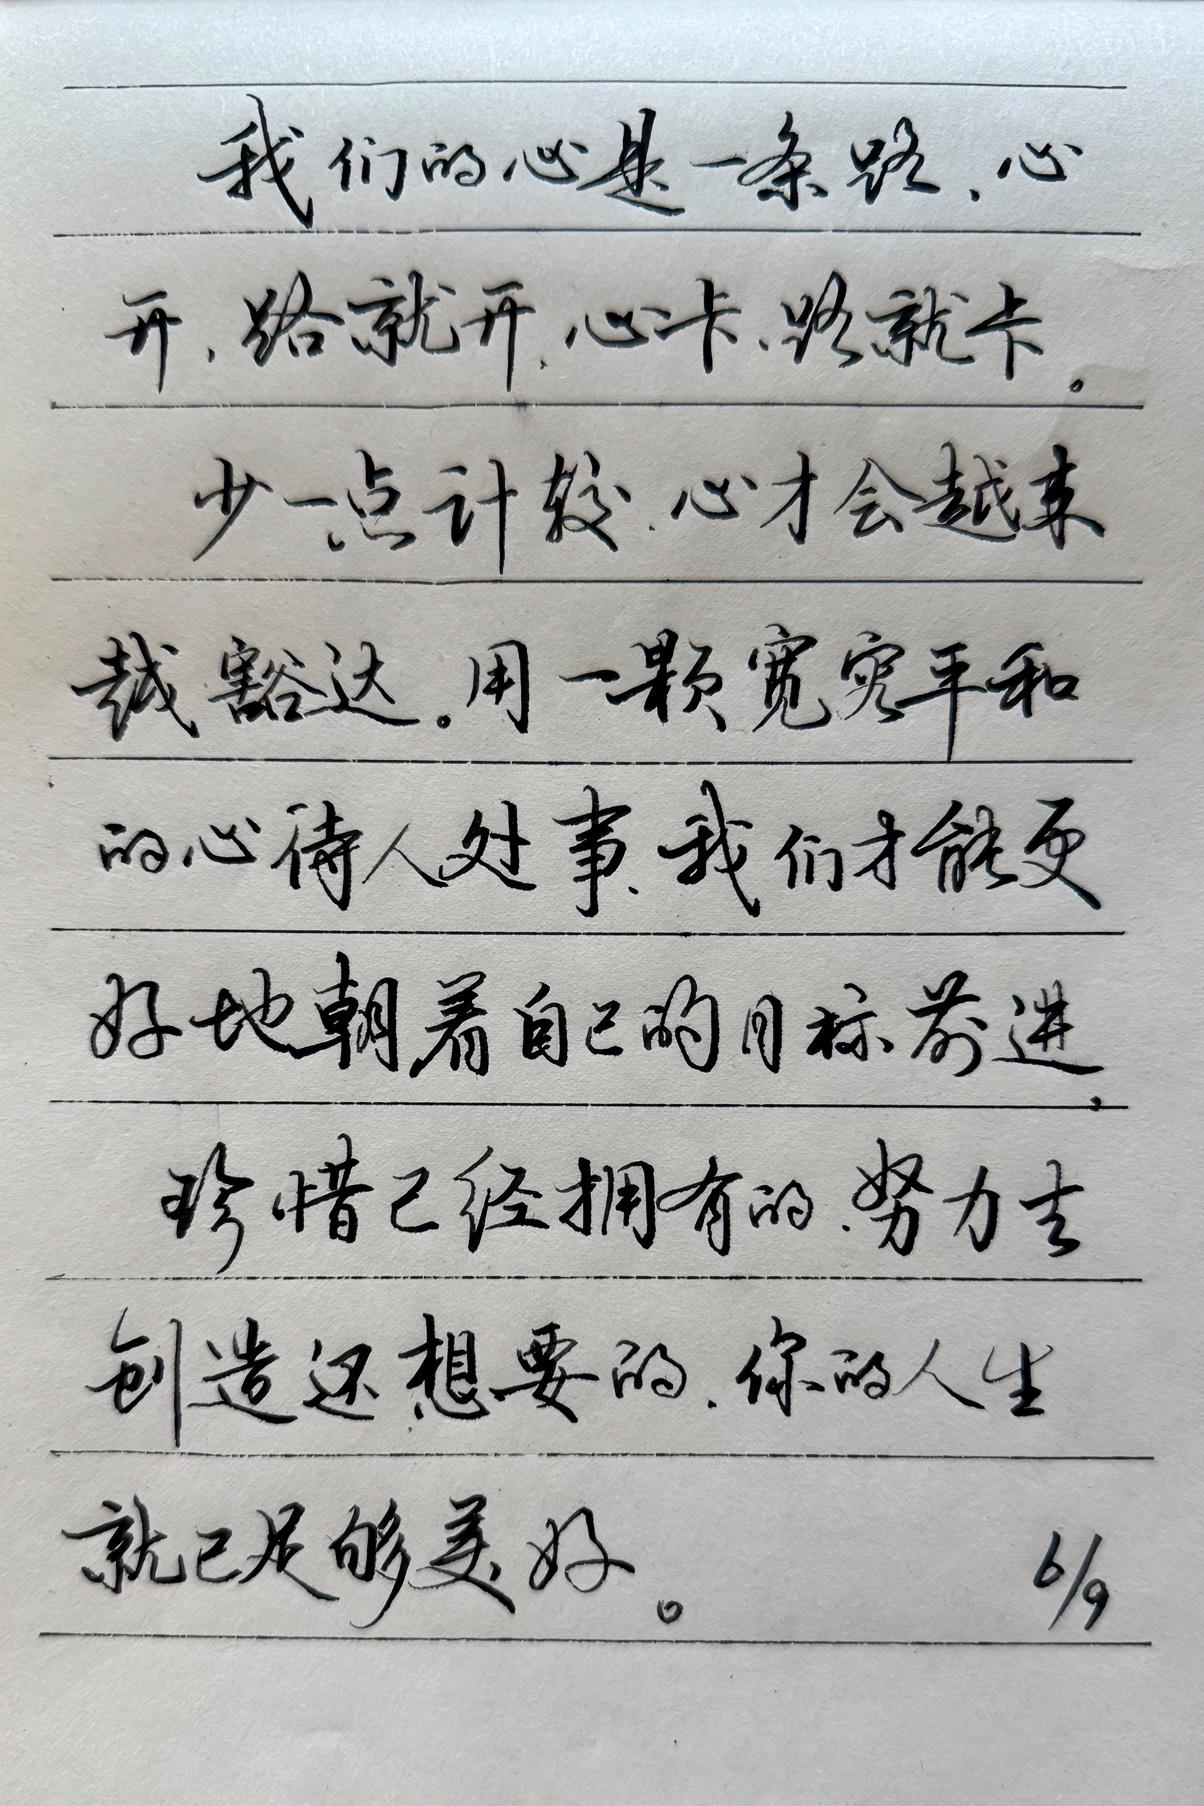 我们的心是一条路，心
开，路就开，心卡，路就卡。
少一点计较，心才会越来
越豁达。用一颗宽容平和
的心待人处事，我们才能更
好地朝着自己的目标前进，
珍惜已经拥有的，努力去
创造还想要的，你的人生
就已足够美好。 6/9